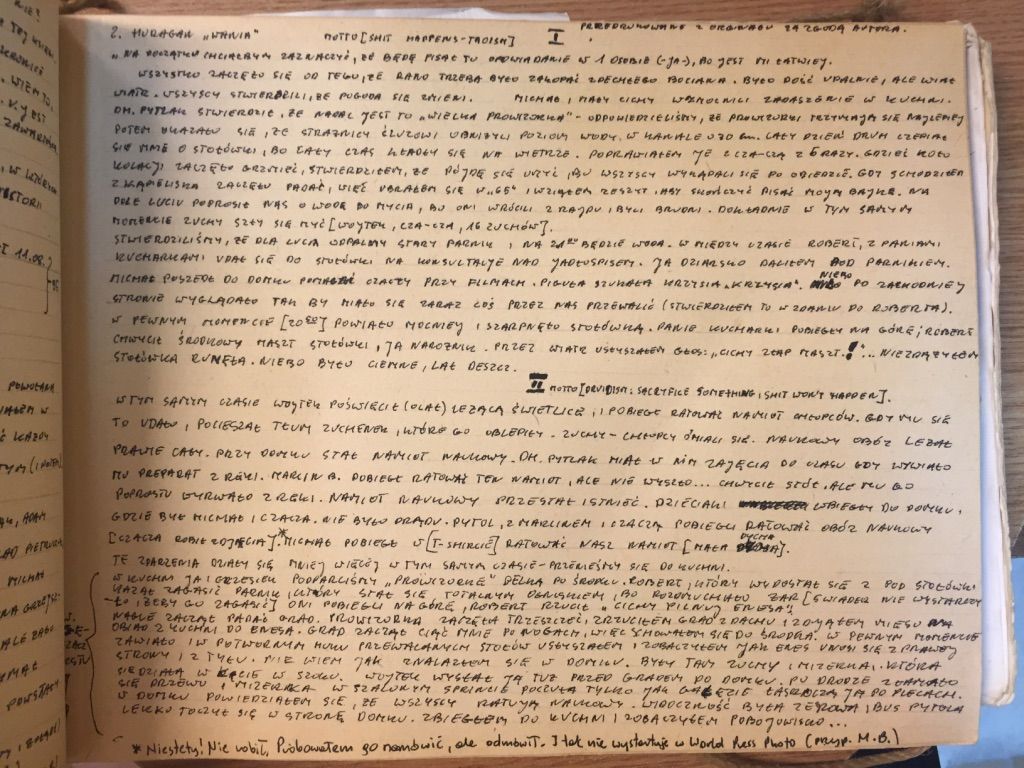 2. HURAGAN „WANIA" MOTTO [SHIT HAPPENS-TAOISM] I PRZEDRUKOWANE Z ORGINAŁU ZA ZGODĄ AUTORA.
„NA POCZĄTKU CHCIAŁBYM ZAZNACZYĆ, ŻE BĘDĘ PISAŁ TO OPOWIADANIE W 1 OSOBIE (-JA-), BO JEST MI ŁATWIEJ.
WSZYSTKO ZACZĘŁO SIĘ OD TEGO, ŻE RANO TRZEBA BYŁO ZAKOPAĆ ZDECHŁEGO BOCIANA. BYŁO DOŚĆ UPALNIE, ALE WIAŁ
WIATR. WSZYSCY STWIERDZILI, ŻE POGODA SIĘ ZMIENI. MICHAŁ, MAŁY CICHY WZMOCNILI ZADASZENIE W KUCHNI.
DH. PYTLAK STWIERDZIŁ, ŻE NADAL JEST TO „WIELKA PROWIZORKA" - ODPOWIEDZIELIŚMY, ŻE PROWIZORKI TRZYMAJĄ SIĘ NAJLEPIEJ
POTEM OKAZAŁO SIĘ, ŻE STRAŻNICY ŚLUZOWI OBNIŻYLI POZIOM WODY W KANALE O 70 cm. CAŁY DZIEŃ DRUH CZEPIAŁ
SIĘ MNIE O STOŁÓWKI, BO CAŁY CZAS KŁADŁY SIĘ NA WIETRZE. POPRAWIAŁEM JE Z CZA-CZĄ Z 6 RAZY. GDZIEŚ KOŁO
KOLACJI ZACZĘŁO GRZMIEĆ, STWIERDZIŁEM, ŻE PÓJDĘ SIĘ UMYĆ, BO WSZYSCY WYKĄPALI SIĘ PO OBIEDZIE. GDY SCHODZIŁEM
Z KĄPIELISKA ZACZĘŁO PADAĆ, WIĘC UBRAŁEM SIĘ W „GS" I WZIĄŁEM ZESZYT, ABY SKOŃCZYĆ PISAĆ MOJĄ BAJKĘ. NA
DOLE LUCIU POPROSIŁ NAS O WODĘ DO MYCIA, BO ONI WRÓCILI Z RAJDU I BYLI BRUDNI. DOKŁADNIE W TYM SAMYM
MOMENCIE ZUCHY SZŁY SIĘ MYĆ [WOJTEK, CZA-CZA, 16 ZUCHÓW].
STWIERDZILIŚMY, ŻE DLA LUCIA ODPALMY STARY PARNIK, I NA 21⁰⁰ BĘDZIE WODA. W MIĘDZY CZASIE ROBERT, Z PANIAMI
KUCHARKAMI UDAŁ SIĘ DO STOŁÓWKI NA KONSULTACJE NAD JADŁOSPISEM. JA DZIARSKO PALIŁEM POD PARNIKIEM.
MICHAŁ POSZEDŁ DO DOMKU POMAGAĆ CZACZY PRZY FILMACH. PIGUŁA SZUKAŁA KRZYSIA „KRZYSIA". NIEBO PO ZACHODNIEJ
STRONIE WYGLĄDAŁO TAK BY MIAŁO SIĘ ZARAZ COŚ PRZEZ NAS PRZEWALIĆ (STWIERDZIŁEM TO W ZDANIU DO ROBERTA).
W PEWNYM MOMENCIE [20⁰⁰] POWIAŁO MOCNIEJ I SZARPNĘŁO STOŁÓWKĄ. PANIE KUCHARKI POBIEGŁY NA GÓRĘ, ROBERT
CHWYCIŁ ŚRODKOWY MASZT STOŁÓWKI, JA NAROŻNIK. PRZEZ WIATR USŁYSZAŁEM GŁOS: „CICHY ZŁAP MASZT!"... NIE ZDĄŻYŁEM
STOŁÓWKA RUNĘŁA. NIEBO BYŁO CIEMNE, LAŁ DESZCZ.
II MOTTO [DRUIDISM: SACRYFICE SOMETHING, SHIT WONY HAPPEN].
W TYM SAMYM CZASIE WOJTEK POŚWIĘCIŁ (OLAŁ) LEŻĄCĄ ŚWIETLICĘ, I POBIEGŁ RATOWAĆ NAMIOT CHŁOPCÓW. GDY MU SIĘ
TO UDAŁO, POCIESZAŁ TŁUM ZUCHENEK, KTÓRE GO OBLEPIŁY. ZUCHY-CHŁOPCY ŚMIALI SIĘ. NAUKOWY OBÓZ LEŻAŁ
PRAWIE CAŁY. PRZY DOMKU STAŁ NAMIOT NAUKOWY. DH. PYTLAK MIAŁ W NIM ZAJĘCIA DO CZASU GDY WYWIAŁO
MU PREPARAT Z RĘKI. MARCIN B. POBIEGŁ RATOWAĆ TEN NAMIOT, ALE NIE WYSZŁO... CHWYCIŁ STÓŁ, ALE MU GO
POPROSTU WYRWAŁO Z RĘKI. NAMIOT NAUKOWY PRZESTAŁ ISTNIEĆ. DZIECIAKI WBIEGŁY DO DOMKU,
GDZIE BYŁ MICHAŁ I CZACZA. NIE BYŁO PRĄDU. PYTOL, Z MARCINEM I CZACZĄ POBIEGLI RATOWAĆ OBÓZ NAUKOWY
[CZACZA ROBIŁ ZDJĘCIA]*. MICHAŁ POBIEGŁ W [T-SHIRCIE] RATOWAĆ NASZ NAMIOT [MAŁA DYCHA].
TE ZDARZENIA DZIAŁY SIĘ MNIEJ WIĘCEJ W TYM SAMYM CZASIE - PRZENIEŚMY SIĘ DO KUCHNI.
W KUCHNI JA I GRZESIEK PODPARLIŚMY „PROWIZORKĘ" BELKĄ PO ŚRODKU. ROBERT, KTÓRY WYDOSTAŁ SIĘ Z POD STOŁÓWKI
KAZAŁ ZAGASIĆ PARNIK, KTÓRY STAŁ SIĘ TOTALNYM OGNISKIEM, BO ROZDMUCHAŁO ŻAR [ŚWIADER NIE WYSTARCZY-
-ŁO, ŻEBY GO ZAGASIĆ] ONI POBIEGLI NA GÓRĘ, ROBERT RZUCIŁ „CICHY PILNUJ ENESA".
NAGLE ZACZĄŁ PADAĆ GRAD. PROWIZORKA ZACZĘŁA TRZESZCZEĆ, ZRZUCIŁEM GRAD Z DACHU I ZDJĄŁEM MIĘSO NA
OBIAD Z KUCHNI DO ENESA. GRAD ZACZĄŁ CIĄĆ MNIE PO NOGACH, WIĘC SCHOWAŁEM SIĘ DO ŚRODKA. W PEWNYM MOMENCIE
ZAWIAŁO I W POTWORNYM HUKU PRZEWALANYCH STOŁÓW USŁYSZAŁEM I ZOBACZYŁEM JAK ENES UNOSI SIĘ Z PRAWEJ
STRONY I Z TYŁU. NIE WIEM JAK ZNALAZŁEM SIĘ W DOMKU. BYŁY TAM ZUCHY I MIZERKA, KTÓRA
SIEDZIAŁA W KĄCIE W SZOKU. WOJTEK WYSŁAŁ JĄ TUŻ PRZED GRADEM DO DOMKU. PO DRODZE ZŁAMAŁO
SIĘ DRZEWO I MIZERKA W SZALONYM SPRINCIE POCZUŁA TYLKO JAK GAŁĘZIE ŁASKOCZĄ JĄ PO PLECACH.
W DOMKU POWIEDZIAŁEM SIĘ, ŻE WSZYSCY RATUJĄ NAUKOWY. WIDOCZNOŚĆ BYŁA ZEROWA, BUS PYTOLA
LEKKO TOCZYŁ SIĘ W STRONĘ DOMKU. ZBIEGŁEM DO KUCHNI I ZOBACZYŁEM POBOJOWISKO...
* Niestety! Nie robił, Próbowałem go namówić, ale odmówił. I tak nie wystartuje w World Press Photo (przyp. M.B.)